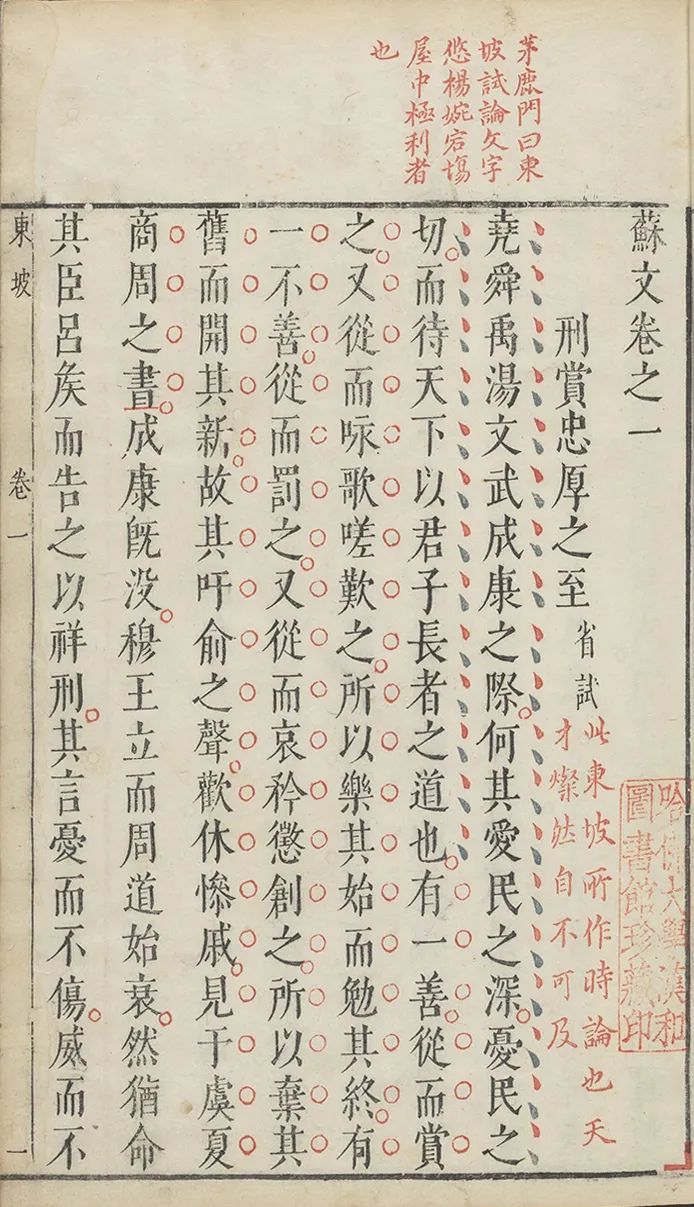 茅鹿門曰東
坡試論文字
悠楊婉宕塲
屋中極利者
也
蘇文卷之一
刑賞忠厚之至
省試
此東坡所作時論也天
才燦然自不可及
堯舜禹湯文武成康之際何其愛民之深憂民之
切而待天下以君子長者之道也有一善從而賞
之又從而咏歌嗟歎之所以樂其始而勉其終有
一不善從而罰之又從而哀矜懲創之所以棄其
舊而開其新故其吁俞之聲歡休慘戚見于虞夏
商周之書成康旣没穆王立而周道始衰然猶命
其臣呂矦而告之以祥刑其言憂而不傷威而不
東坡
卷一
一
哈佛大學漢和
圖書館珍藏印